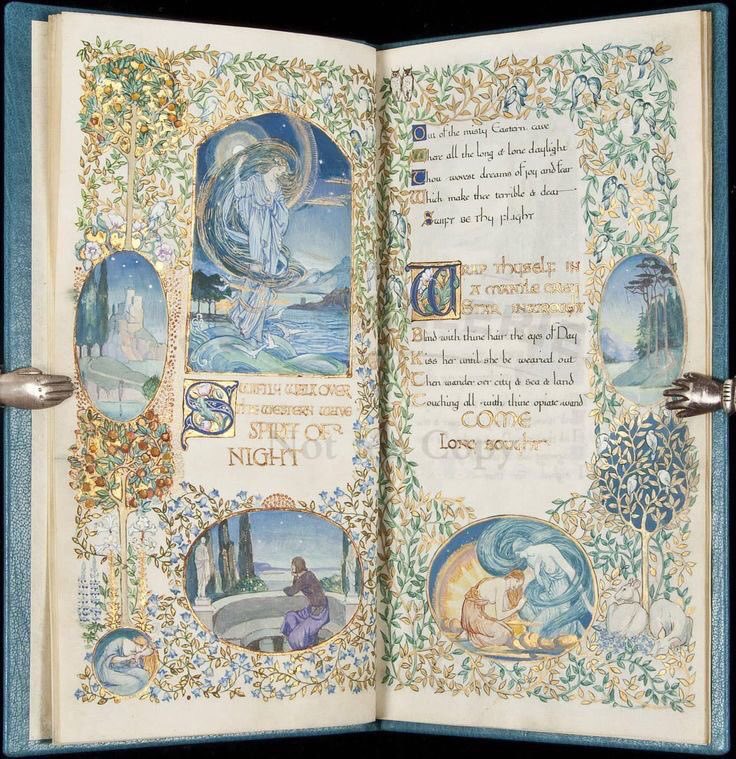 SWIFTLY WALK OVER
THE WESTERN WAVE
SPIRIT OF
NIGHT
Out of the misty Eastern cave
Where all the long & lone daylight
Thou wovest dreams of joy and fear
Which make thee terrible & dear
SWIFT BE THY FLIGHT
WRAP THYSELF IN
A MANTLE GREY
STAR INWROUGHT
Blind with thine hair the eyes of Day
Kiss her until she be wearied out
Then wander oer city & sea & land
Touching all with thine opiate wand
COME
LONG SOUGHT
Not Copy